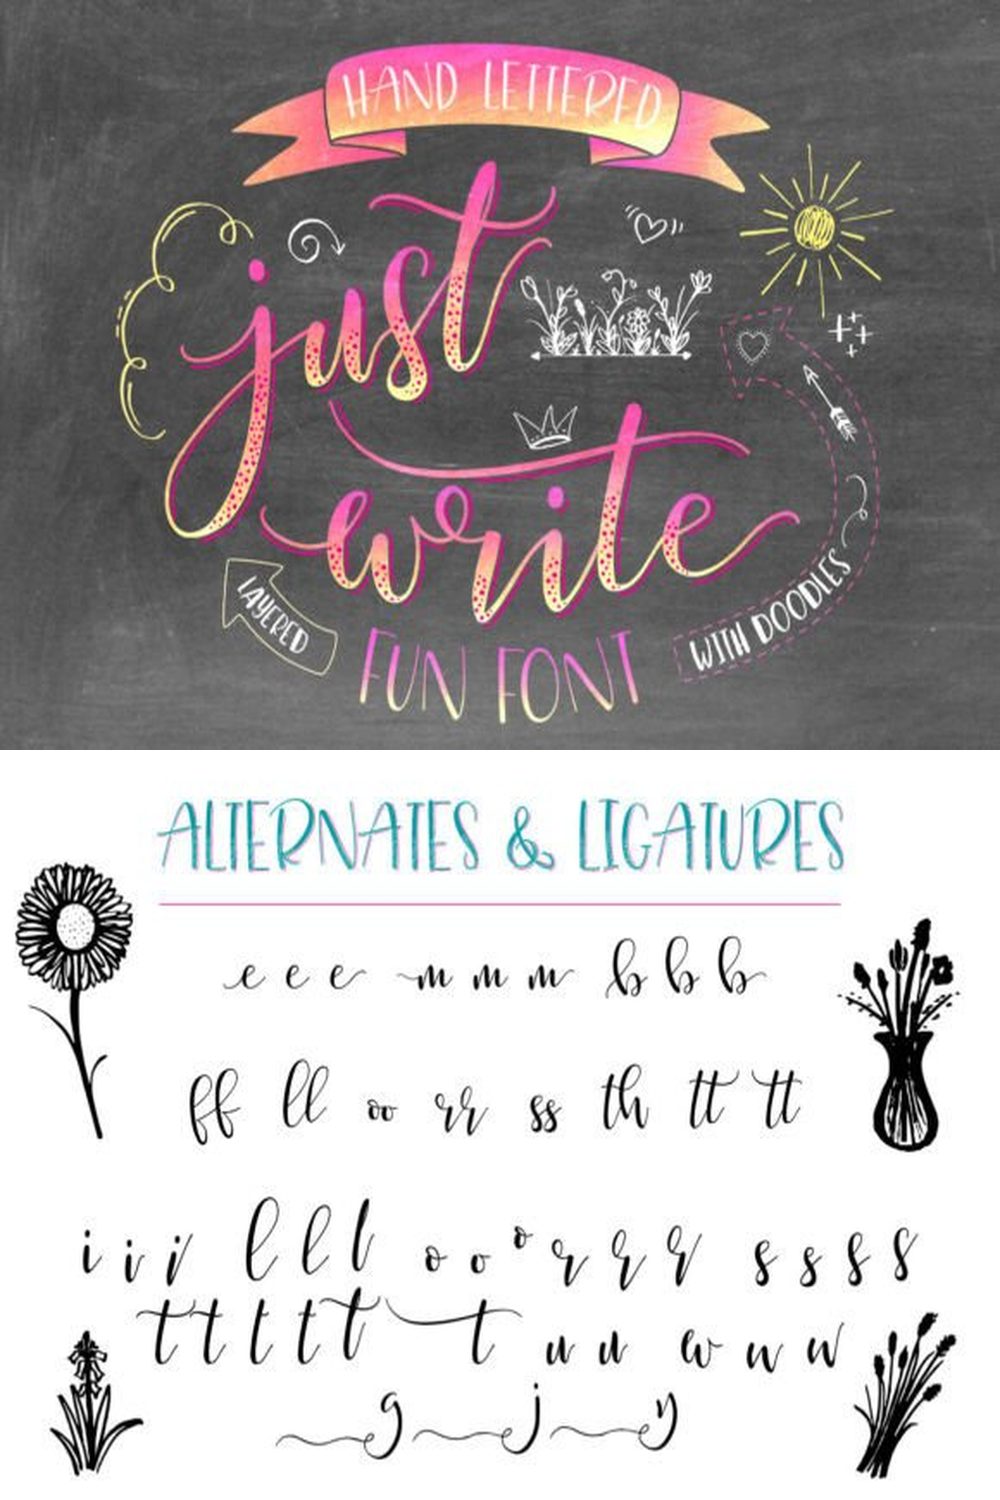 HAND LETTERED
just
write
LAYERED
FUN FONT
WITH DOODLES
ALTERNATES & LIGATURES
e e e m m m b b b
ff ll oo rr ss th tt tt
i i i l l l o o o r r r s s s s
t t t t t t u u w w w
g j y